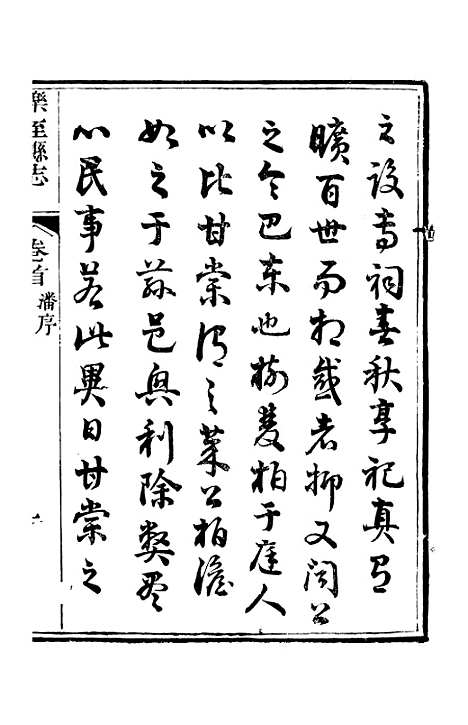 之設專祠春秋享祀真有
曠百世而相感者抑又聞公
之令巴東也樹雙柏于庭人
以比甘棠謂之萊公柏澹
如之于茲邑興利除弊盡
心民事若此異日甘棠之
樂至縣志
卷首
潘序